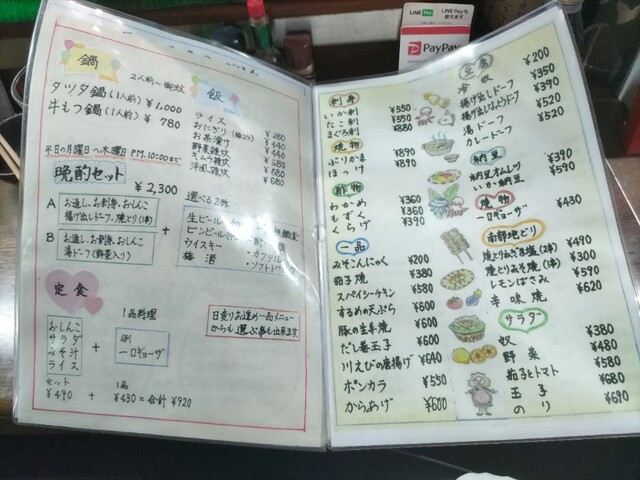 鍋
2人前〜御飯
タツタ鍋(1人前) ¥1,000
牛もつ鍋(1人前) ¥780
飯
ライス ¥280
おにぎり ¥440
お茶漬け ¥440
野菜雑炊 ¥580
キムチ雑炊 ¥680
洋風雑炊 ¥680
平日の月曜日〜木曜日 PM.10:00まで
晩酌セット ¥2,300
A お通し、お刺身、おしんこ
揚げ出しドーフ、焼とり
B お通し、お刺身、おしんこ
湯ドーフ(野菜入り)
+
選べる2杯
生ビール
ビンビール
ウイスキー
梅酒
ソフト
定食
おしんこ
サラダ
みそ汁
ライス
+
1品料理
例
一口ギョーザ
日変りお進め一品メニュー
からも選ぶ事も出来ます
セット
¥490
+
1品
¥430 = 合計 ¥920
LINE Pay
PayPay
刺身
いか刺 ¥550
たこ刺 ¥550
まぐろ刺 ¥880
焼物
ぶりかま ¥890
ほっけ ¥890
酢物
わかめ ¥360
もずく ¥360
くらげ ¥390
一品
みそこんにゃく ¥200
茄子焼 ¥380
スパイシーチキン ¥580
するめの天ぷら ¥600
豚の生姜焼 ¥600
だし巻玉子 ¥600
川えびの唐揚げ ¥640
ポンカラ ¥550
からあげ ¥600
豆腐
冷奴 ¥200
揚げ出しドーフ ¥350
¥390
湯ドーフ ¥520
カレードーフ ¥520
納豆
納豆オムレツ ¥390
いか納豆 ¥590
焼物
一口ギョーザ ¥430
南部地どり
焼とりねぎ塩(2本) ¥490
焼とりみそ焼(1本) ¥300
レモンはさみ ¥590
辛味焼 ¥620
サラダ
奴 ¥380
野菜 ¥480
茄子とトマト ¥580
玉子 ¥680
のり ¥690